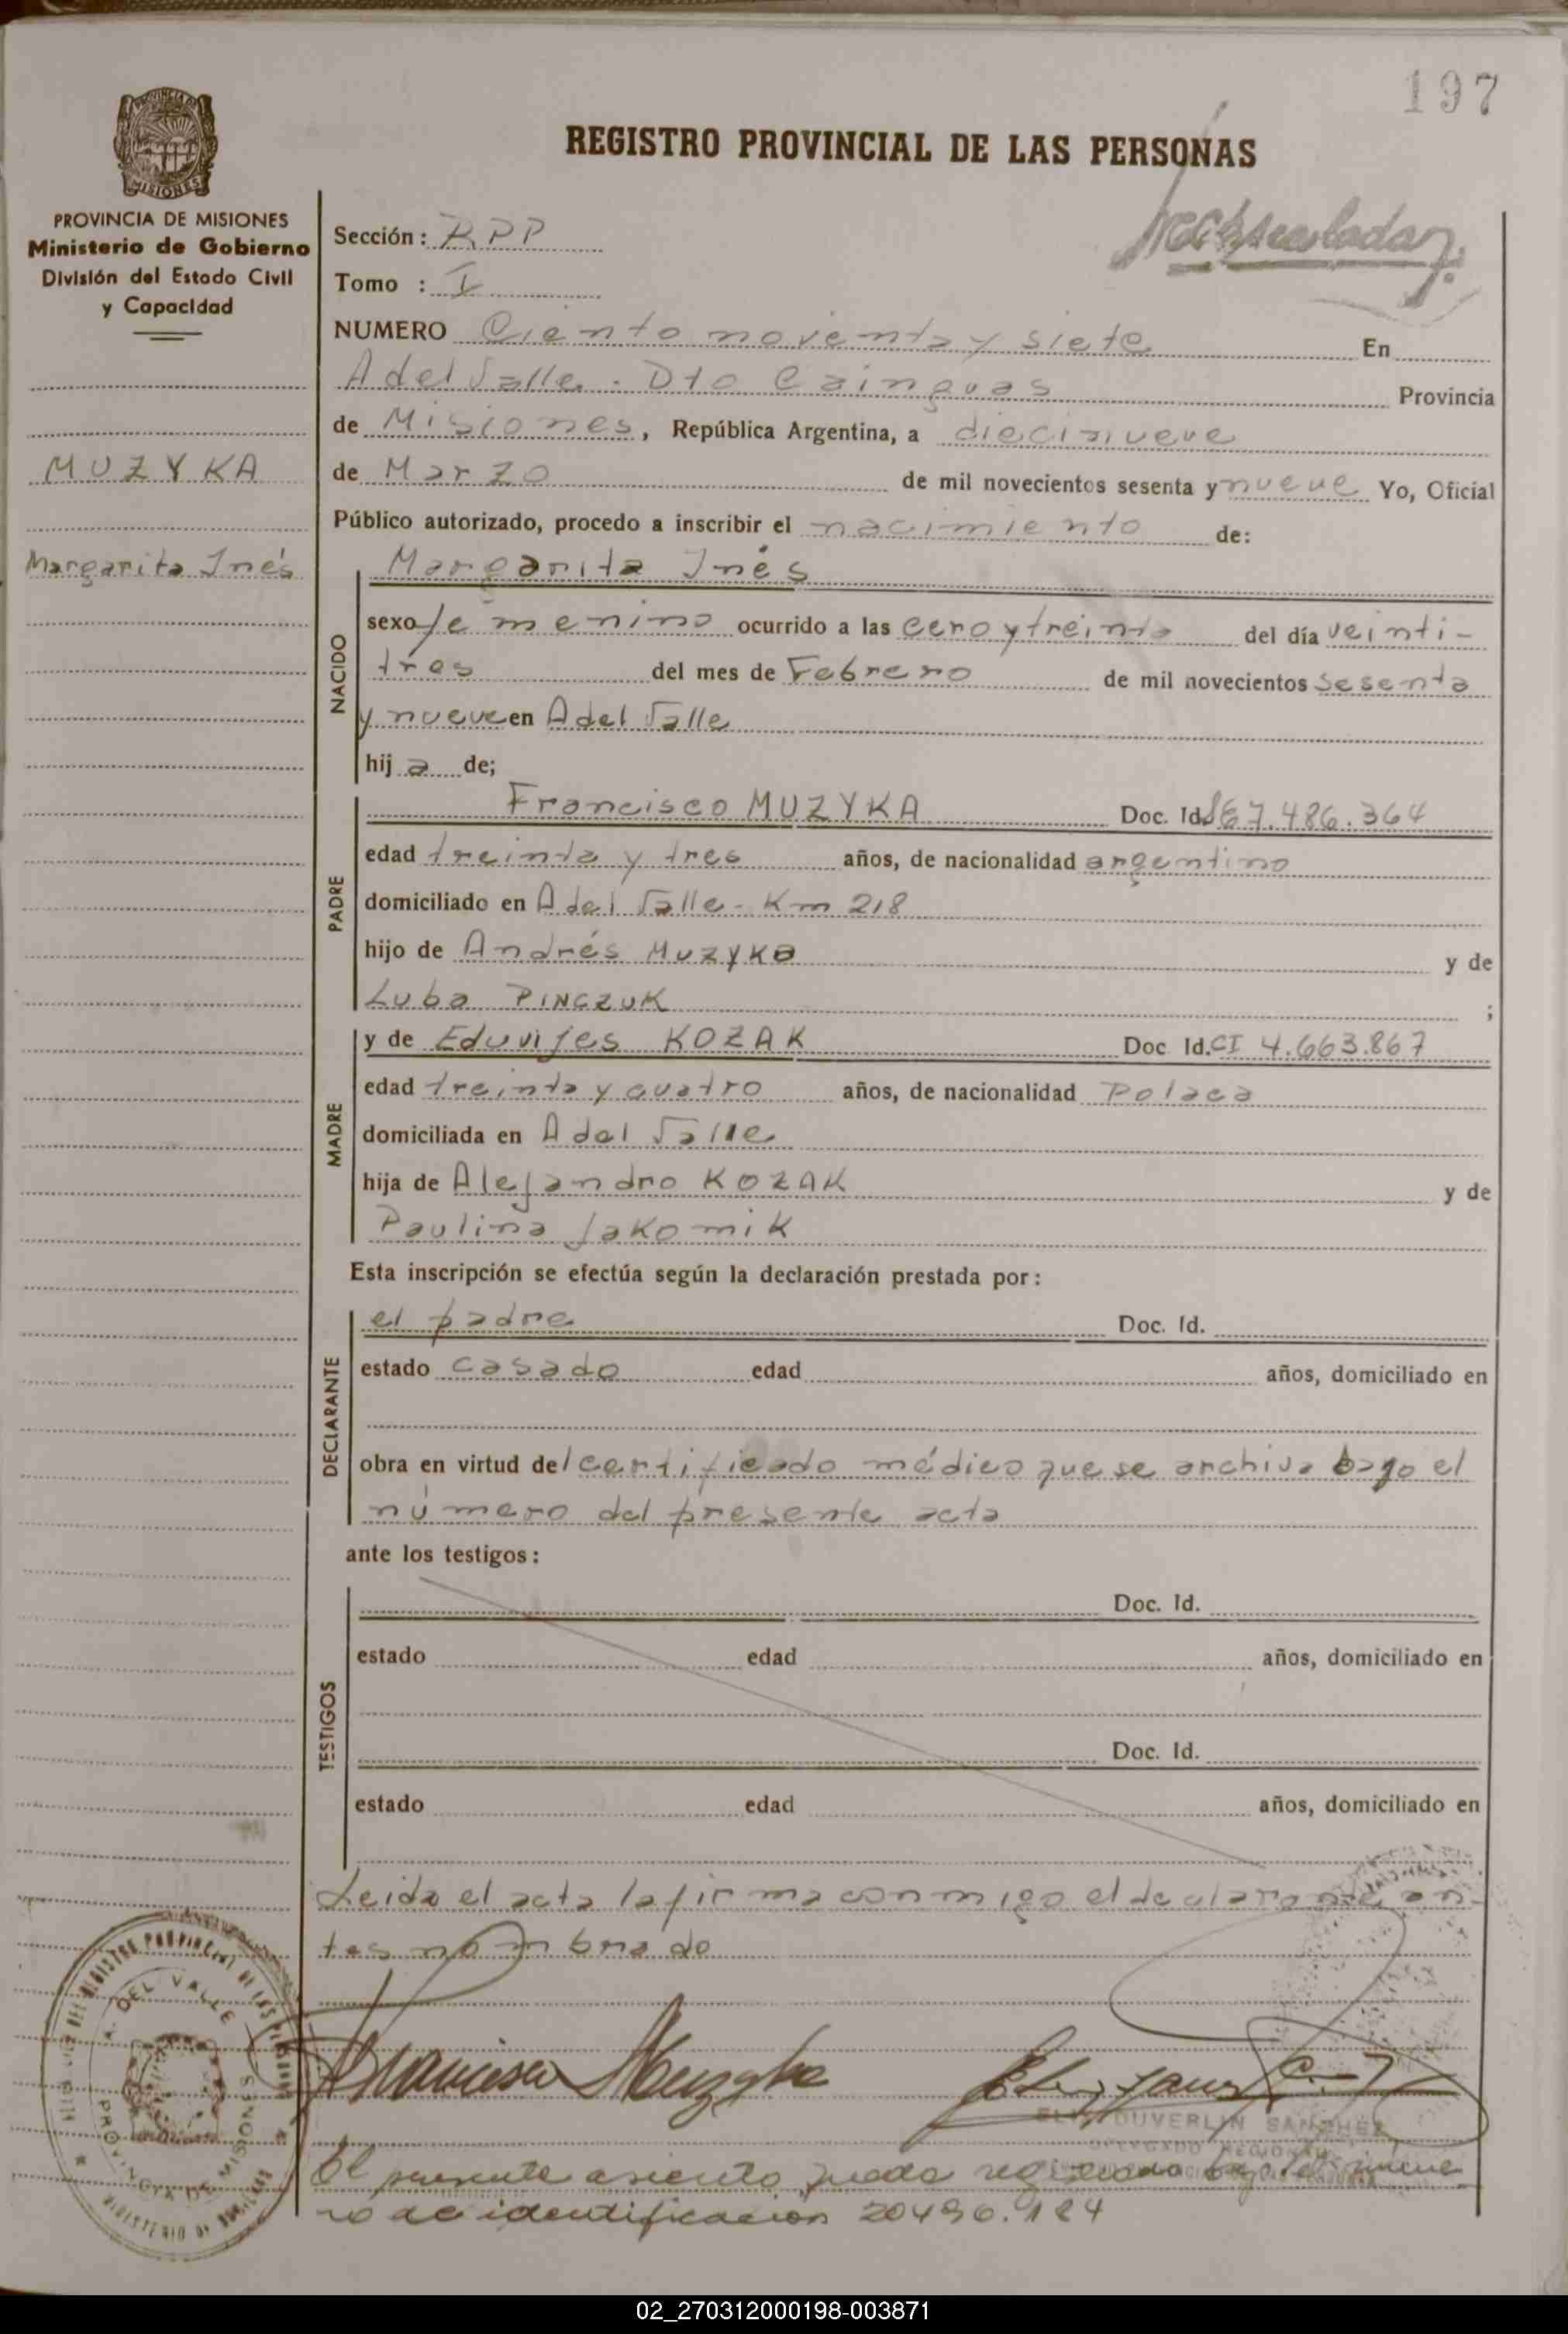 197
REGISTRO PROVINCIAL DE LAS PERSONAS
PROVINCIA DE MISIONES
Ministerio de Gobierno
División del Estado Civil
y Capacidad
MUZYKA
Margarita Inés
Sección: RPP
Tomo : I
NUMERO Ciento noventa y siete En
A del Valle. Dto Cainguas Provincia
de Misiones, República Argentina, a diecinueve
de Marzo de mil novecientos sesenta y nueve Yo, Oficial
Público autorizado, procedo a inscribir el nacimiento de:
Margarita Inés
NACIDO
sexo femenino ocurrido a las cero y treinta del día veinti-
tres del mes de Febrero de mil novecientos sesenta
y nueve en A del Valle
hij a de;
PADRE
Francisco MUZYKA Doc. Id. 7.486.364
edad treinta y tres años, de nacionalidad argentino
domiciliado en A del Valle - Km 218
hijo de Andrés Muzyka y de
Luba PINCZUK ;
MADRE
y de Eduvijes KOZAK Doc Id. CI 4.663.867
edad treinta y cuatro años, de nacionalidad Polaca
domiciliada en A del Valle
hija de Alejandro KOZAK y de
Paulina Jakomik
Esta inscripción se efectúa según la declaración prestada por:
DECLARANTE
el padre Doc. Id.
estado casado edad años, domiciliado en
obra en virtud del certificado médico que se archiva bajo el
número del presente acta
ante los testigos:
TESTIGOS
Doc. Id.
estado edad años, domiciliado en
Doc. Id.
estado edad años, domiciliado en
Leida el acta la firma conmigo el declarante an-
tes nombrado
Francisco Muzyka
DUVERLIN SANCHEZ
DELEGADO REGIONAL
A. DEL VALLE
PROVINCIA DE MISIONES
El presente asiento queda registrado bajo el núme
ro de identificación 20496.184
02_270312000198-003871